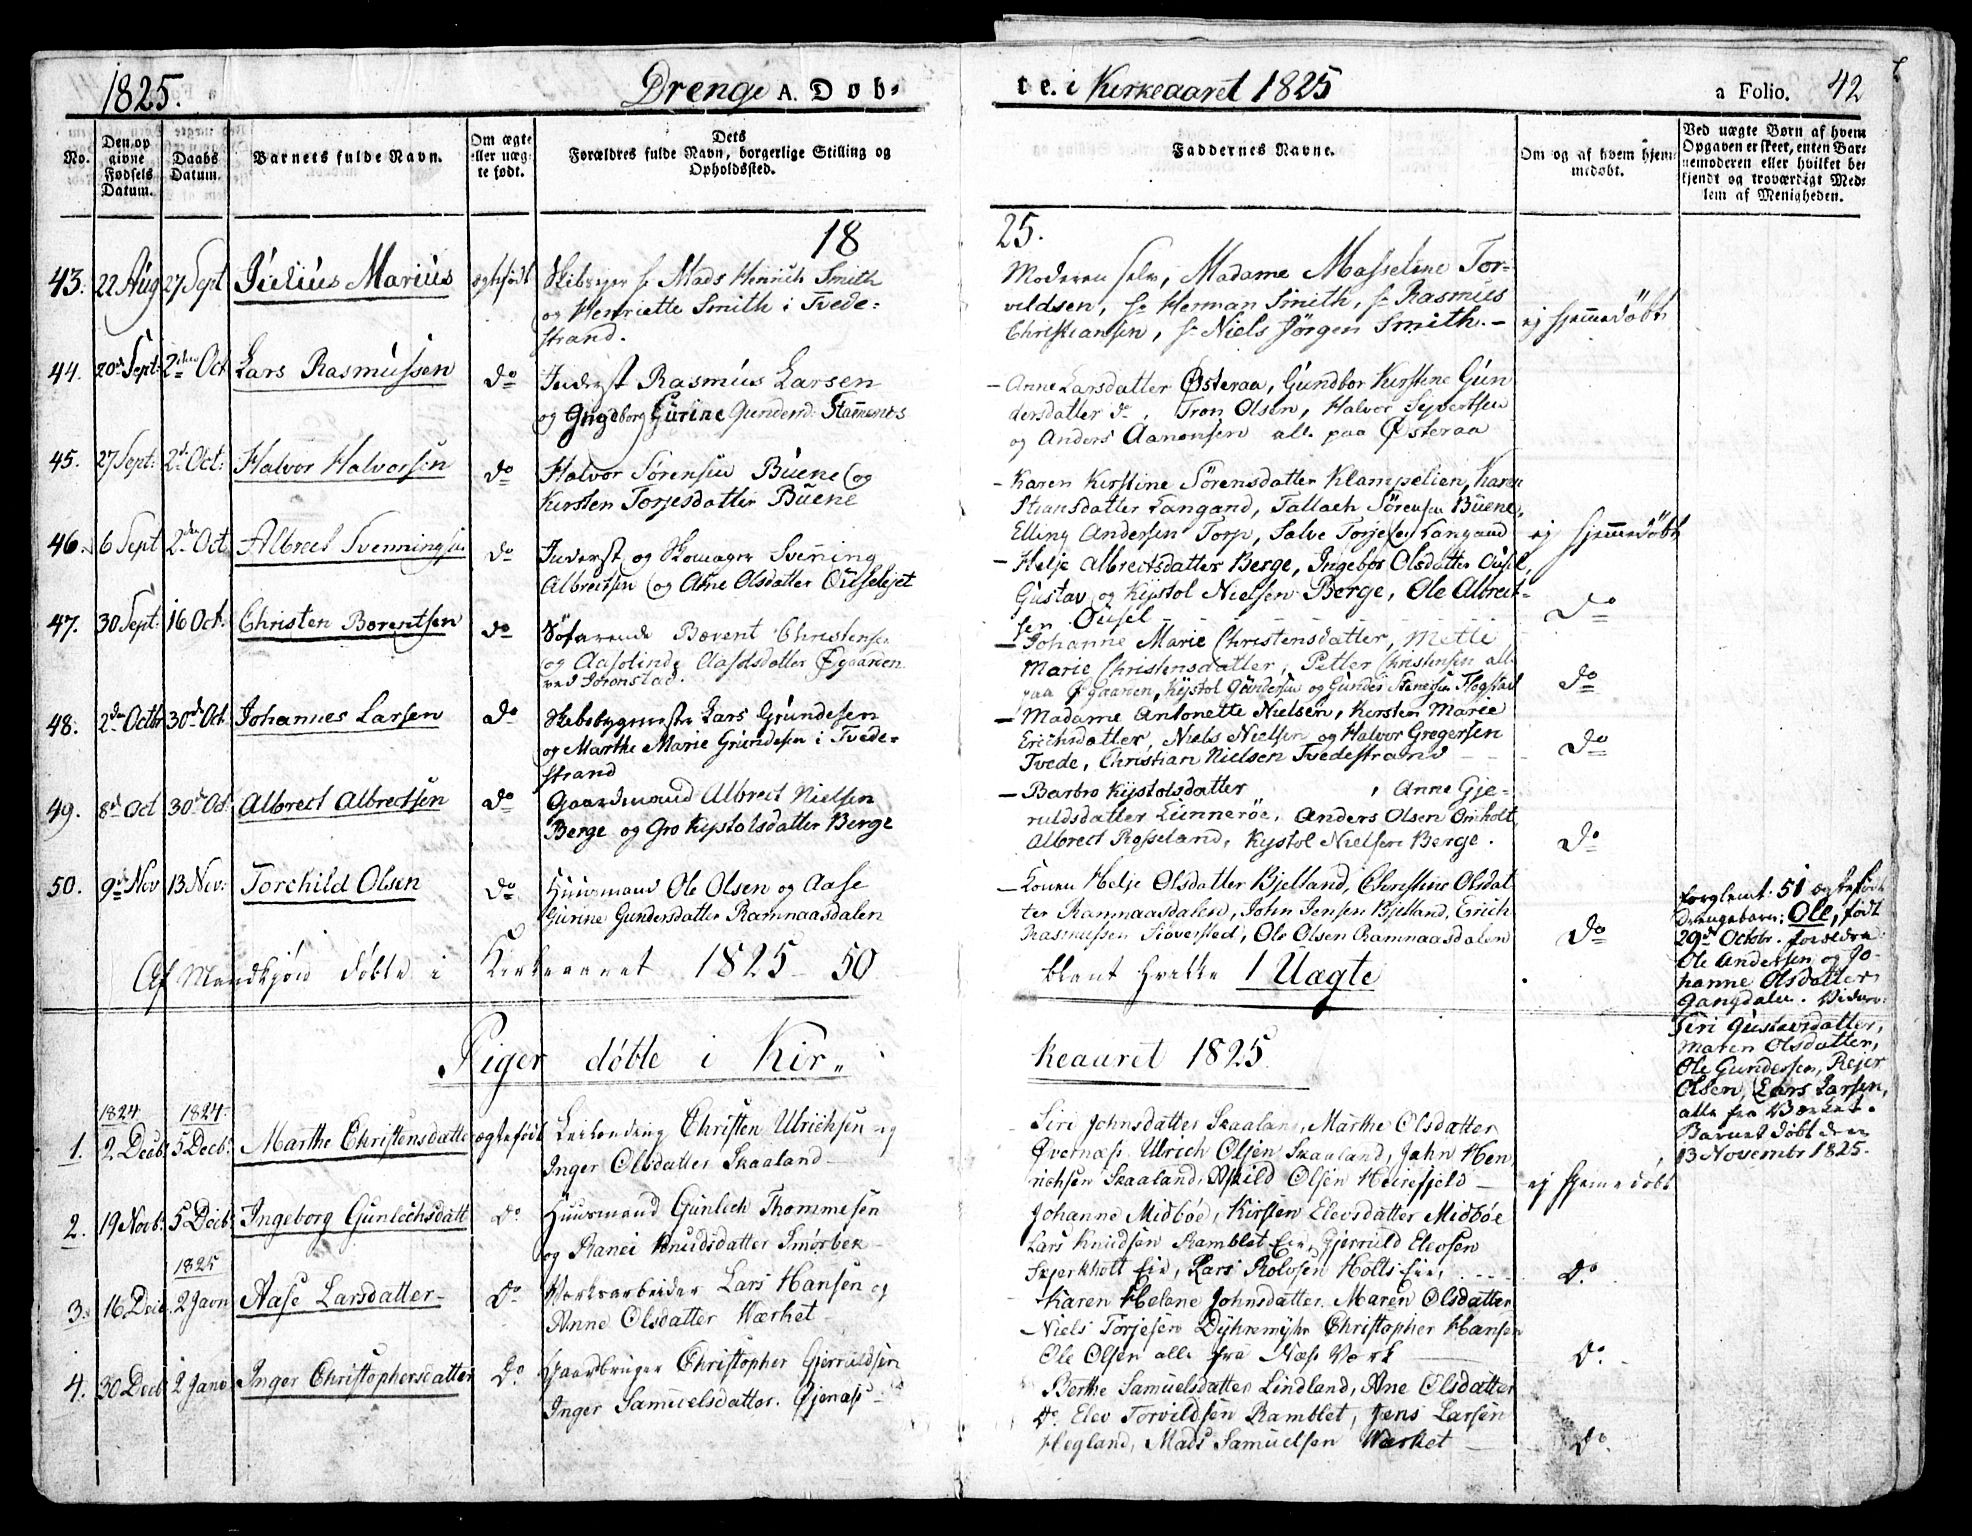 1825. Drenge A. Døb-
te. i Kirkeaaret 1825 a Folio. 42
No. Den opgivne Fødsels Datum. Daabs Datum. Barnets fulde Navn. Om ægte eller uægte født. Dets Forældres fulde Navn, borgerlige Stilling og Opholdssted.
Faddernes Navne. Om og af hvem hjemmedøbt. Ved uægte Børn af hvem Opgaven er skeet, enten Barnemoderen eller hvilket bekjendt og troværdigt Medlem af Menigheden.
18
25.
43. 22 Aug 27 Sept Julius Marius ægtefødt Mads Henrich Smith
og Henriette Smith i Tvede-
strand.
Moderen selv, Madame Masseline Tor-
vildsen, Hr Herman Smith, Hr Rasmus
Christiansen, Hr Niels Jörgen Smith. - ej hjemmedøbt
44. 20de Sept: 2den Oct Lars Rasmussen do Inderst Rasmus Larsen
og Ingeborg Gurine Gundersd: Stammenes
- Anne Larsdatter Østeraa, Gundbor Kirstine Gun
dersdatter do, Tron Olsen, Halvor Syvertsen
og Anders Aanonsen alle paa Østeraa
45. 27 Sept: 2d Oct: Halvor Halvorsen do Halvor Sörensen Buene og
Kirsten Torjesdatter Buene
- Karen Kirstine Sörensdatter Klampelien, Karen
datter Langand, Tallach Sörensen Buene,
Elling Andersen Torp, Salve Torjesen Langand ej hjemmedøbt
46. 6 Sept 2den Oct Albrect Svenningsen do Inderst og Skomager Svenning
Albrectsen og Ane Olsdatter
- Helje Albrectsdatter Berge, Ingebor Olsdatter Ousel,
Gustav og Kystol Nielsen Berge, Ole Albrect-
sen Ousel do
47. 30 Sept: 16 Oct. Christen Børentsen do Søfarende Børent Christensen
og Aasolinde Aasolsdatter Øgaarden
ved Songstad.
- Johanne Marie Christensdatter, Mette
Marie Christensdatter, Petter Christensen alle
paa Øgaarden, Kystol Gundersen og Gunder Stenersen do
48. 2den Octbr 30de Oct. Johannes Larsen do Skibsbygmester Lars Grundesen
og Marthe Marie Grundesen i Tvede-
strand
- Madame Antonette Nielsen, Kirsten Marie
Erichsdatter, Niels Nielsen og Halvor Gregersen
Tvede, Christian Nielsen Tvedestrand do
49. 8d Oct 30d Oct. Albrect Albrectsen do Gaardmand Albrect Nielsen
Berge og Gro Kystolsdatter Berge
- Barbro Kystolsdatter, Anne Gje-
ruldsdatter Lunneröe, Anders Olsen
Albrect Rosseland, Kystol Nielsen Berge. do
50. 9de Nov 13 Nov: Torchild Olsen do Huusmand Ole Olsen og Aase
Gurine Gundersdatter Ramnaasdalen
- Konen Helje Olsdatter Bjelland, Christine Olsdat
ter Ramnaasdalen, John Jensen Bjelland, Erich
Rasmussen, Ole Olsen Ramnaasdalen do
Af Mandkjön döbte i Kirkeaaret 1825 50
blant hvilke 1 Uægte
Forglemt: 51 ægtefødt
Drengebarn: Ole, født
29de Octobr. Forældre
Ole Andersen og Jo-
hanne Olsdatter
Gangdalen.
Siri Gustavsdatter,
Maren Olsdatter,
Ole Gundersen, Rejer
Olsen, Lars Larsen,
alle fra Værket.
Barnet døbt den
13 Novembr 1825.
Piger döbte i Kir-
keaaret 1825.
1824 1824
1. 2 Decb. 5 Decb. Marthe Christensdatte ægtefödt Leilending Christen Ulrichsen og
Inger Olsdatter Skaaland
Siri Johnsdatter Skaaland, Marthe Olsdatter
Øvernæs. Ulrich Olsen Skaaland, John Hen
richsen Skaaland, Askild Olsen Heirefjeld ej hjemmedöbt
2. 19 Novb. 5 Decb. Ingeborg Gunlechsdatt do Huusmand Gunlech Thommesen
og Ranei Knudsdatter Smørbek
Johanne Midböe, Kirsten Elevsdatter Midböe
Lars Knudsen Ramblet Eie, Gjerruld Elevsen
Skjerkholt Eie, Lars Rolvsen Holts Eie, do
1825
3. 16 Decb. 2 Janv Aase Larsdatter do Værksarbeider Lars Hansen og
Anne Olsdatter Værket
Karen Helene Johnsdatter, Maren Olsdatter
Niels Torjesen Dyhremyhr Christopher Hansen
Ole Olsen alle fra Næs Værk do
4. 30 Decb 2 Janv Inger Christophersdatter do Gaardbruger Christopher Gjerruldsen
Inger Samuelsdatter. Øjenæs
Berthe Samuelsdatter Lindland, Ane Olsdatter
do. Elev Torvildsen Ramblet, Jens Larsen
Hegland, Mads Samuelsen Værket do